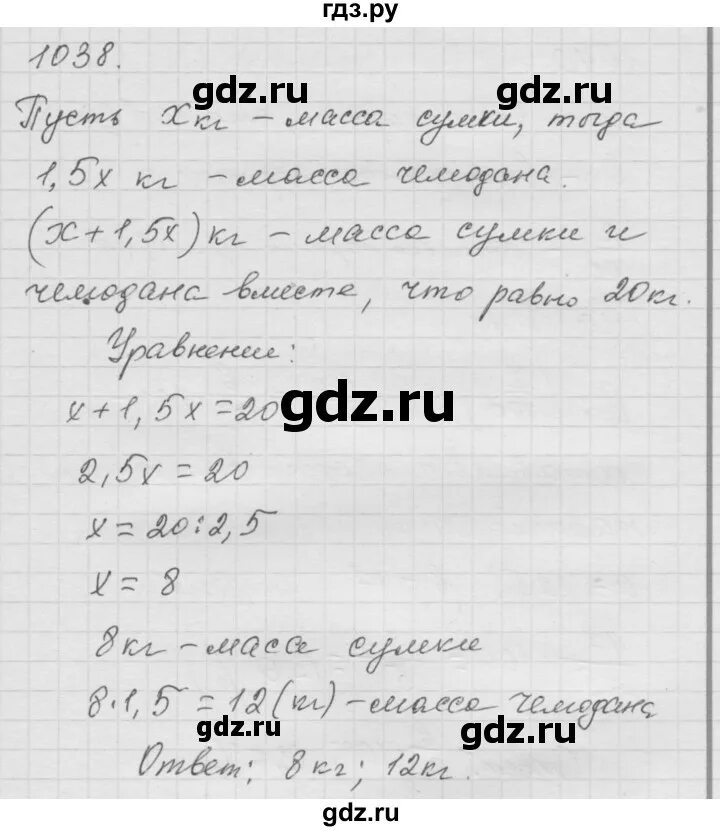 гдз.ру
1038.
gdz.ru gdz.ru
Пусть x кг – масса сумки, тогда
1,5x кг – масса чемодана.
(x+1,5x) кг – масса сумки и
чемодана вместе, что равно 20кг.
Уравнение:
gdz.ru
x+1,5x=20
2,5x=20
x=20:2,5
x=8
8кг – масса сумки
8·1,5=12(кг) – масса чемодана
gdz.ru gdz.ru
Ответ: 8кг; 12кг.
gdz.ru